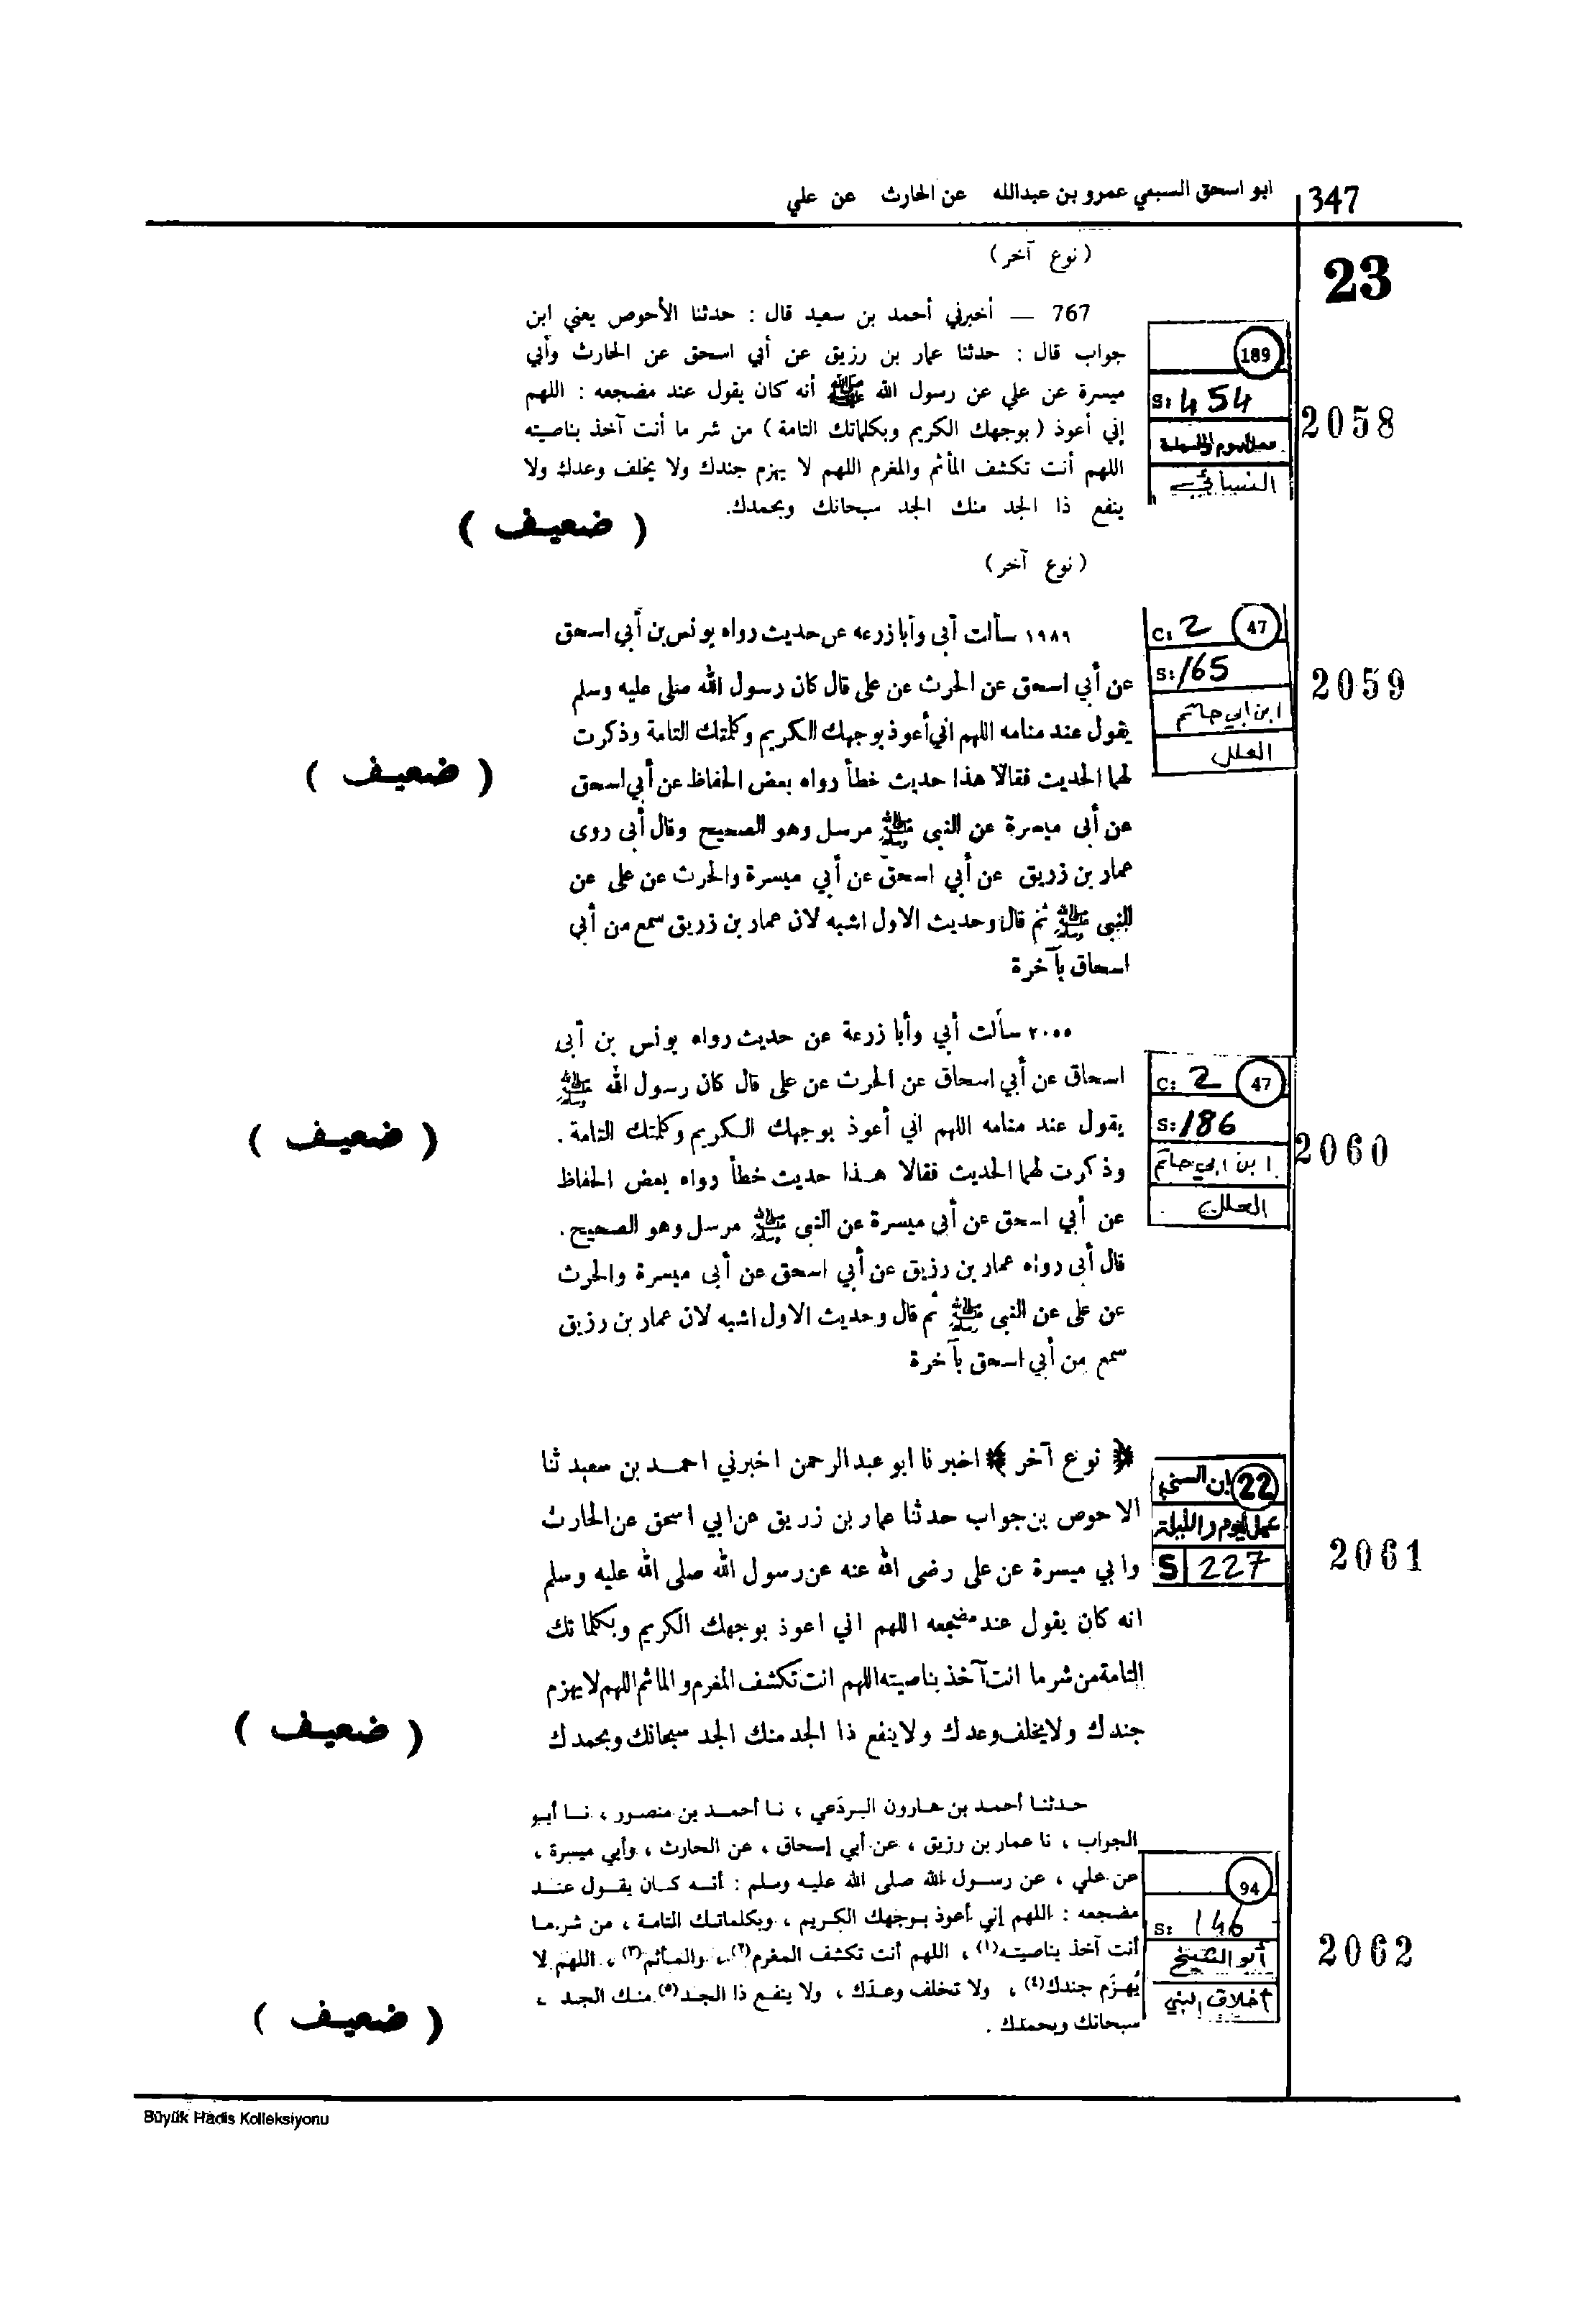 347
ابو اسحق السبعي عمرو بن عبدالله عن الحارث عن علي
23
(نوع آخر)
767 — أخبرني أحمد بن سعيد قال : حدثنا الأحوص يعني ابن
جواب قال : حدثنا عمار بن رزيق عن أبي اسحق عن الحارث وأبي
ميسرة عن علي عن رسول الله ﷺ أنه كان يقول عند مضجعه : اللهم
إني أعوذ ( بوجهك الكريم وبكلماتك التامة ) من شر ما أنت آخذ بناصيته
اللهم أنت تكشف المأثم والمغرم اللهم لا يهزم جندك ولا يخلف وعدك ولا
ينفع ذا الجد منك الجد سبحانك وبحمدك.
( ضعيف )
189
S: 454
النسائي
2058
(نوع آخر)
١٩٨٩ سألت أبى وأبا زرعه عن حديث رواه يونس بن أبي اسحق
عن أبي اسحق عن الحرث عن على قال كان رسول الله صلى عليه وسلم
يقول عند منامه اللهم اني أعوذ بوجهك الكريم وكلمتك التامة وذكرت
لهما الحديث فقالا هذا حديث خطأ رواه بعض الحفاظ عن أبي اسحق
عن أبى ميسرة عن النبى ﷺ مرسل وهو الصحيح وقال أبى روى
عمار بن زريق عن أبي اسحق عن أبي ميسرة والحرث عن على عن
النبى ﷺ ثم قال وحديث الاول اشبه لان عمار بن زريق سمع من أبي
اسحاق بآخرة
( ضعيف )
47
C: 2
S: 165
ابن ابي حاتم
العلل
2059
٢٠٥٥ سألت أبي وأبا زرعة عن حديث رواه يونس بن أبى
اسحاق عن أبي اسحاق عن الحرث عن على قال كان رسول الله ﷺ
يقول عند منامه اللهم اني أعوذ بوجهك الكريم وكلمتك التامة .
وذكرت لهما الحديث فقالا هذا حديث خطأ رواه بعض الحفاظ
عن أبي اسحق عن أبى ميسرة عن النبى ﷺ مرسل وهو الصحيح .
قال أبى رواه عمار بن رزيق عن أبي اسحق عن أبى ميسرة والحرث
عن على عن النبى ﷺ ثم قال وحديث الاول اشبه لان عمار بن رزيق
سمع من أبي اسحق بآخرة
( ضعيف )
47
C: 2
S: 186
ابن ابي حاتم
العلل
2060
﴿ نوع آخر ﴾ اخبرنا ابو عبد الرحمن اخبرني احمد بن سعيد ثنا
الاحوص بن جواب حدثنا عمار بن زريق عن ابي اسحق عن الحارث
وابي ميسرة عن على رضى الله عنه عن رسول الله صلى الله عليه وسلم
انه كان يقول عند مضجعه اللهم اني اعوذ بوجهك الكريم وبكلماتك
التامة من شر ما انت آخذ بناصيته اللهم انت تكشف المغرم والماثم اللهم لا يهزم
جندك ولا يخلف وعدك ولا ينفع ذا الجد منك الجد سبحانك وبحمدك
( ضعيف )
22
ابن السني
عمل اليوم والليلة
S 227
2061
حدثنا أحمد بن هارون البردعي ، نا أحمد بن منصور ، نا أبو
الجواب ، نا عمار بن رزيق ، عن أبي إسحاق ، عن الحارث ، وأبي ميسرة ،
عن علي ، عن رسول الله صلى الله عليه وسلم : أنه كان يقول عند
مضجعه : اللهم إني أعوذ بوجهك الكريم ، وبكلماتك التامة ، من شر ما
أنت آخذ بناصيته(١) ، اللهم أنت تكشف المغرم(٢) ، والمأثم(٣) ، اللهم لا
يُهزَم جندك(٤) ، ولا تخلف وعدك ، ولا ينفع ذا الجد(٥) منك الجد ،
سبحانك وبحمدك .
( ضعيف )
94
S: 146
أبو الشيخ
أخلاق النبي
2062
Büyük Hadis Kolleksiyonu